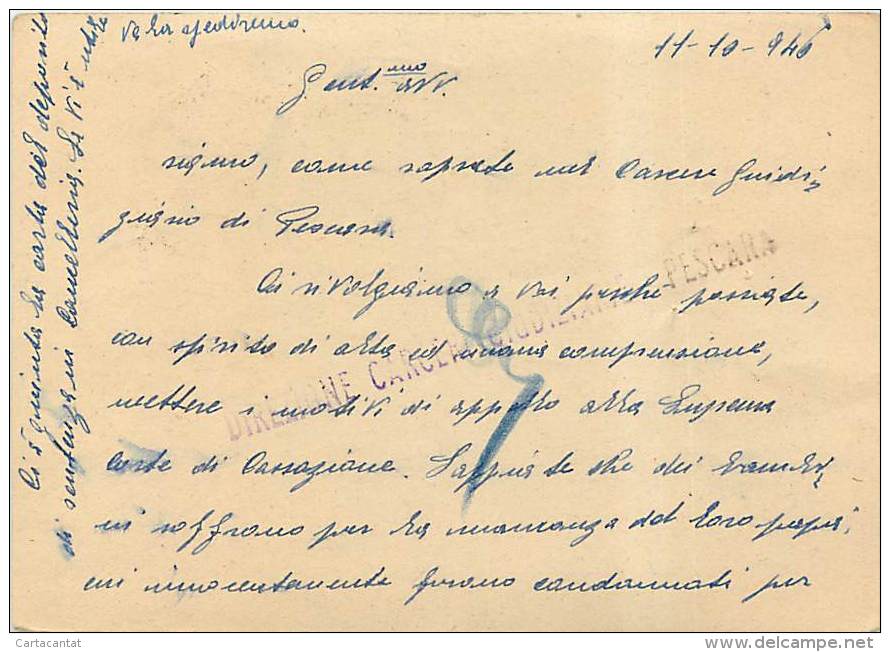 11-10-946
Gent.mo Avv.
siamo, come sapete nel Carcere Giudi-
ziario di Pescara.
Ci rivolgiamo a Voi perché possiate,
con spirito di alta ed umana comprensione,
mettere i motivi di appello alla Suprema
Corte di Cassazione. Sappiate che dei bambi-
ni soffrono per la mancanza del loro papà,
mi innocentemente furono condannati per
Ci è giunta la carta del deposito
di sentenza in Cancelleria. Se Vi è utile
ve la spediremo.
DIREZIONE CARCERI GIUDIZIARIE PESCARA
Cartacantat
delcampe.net